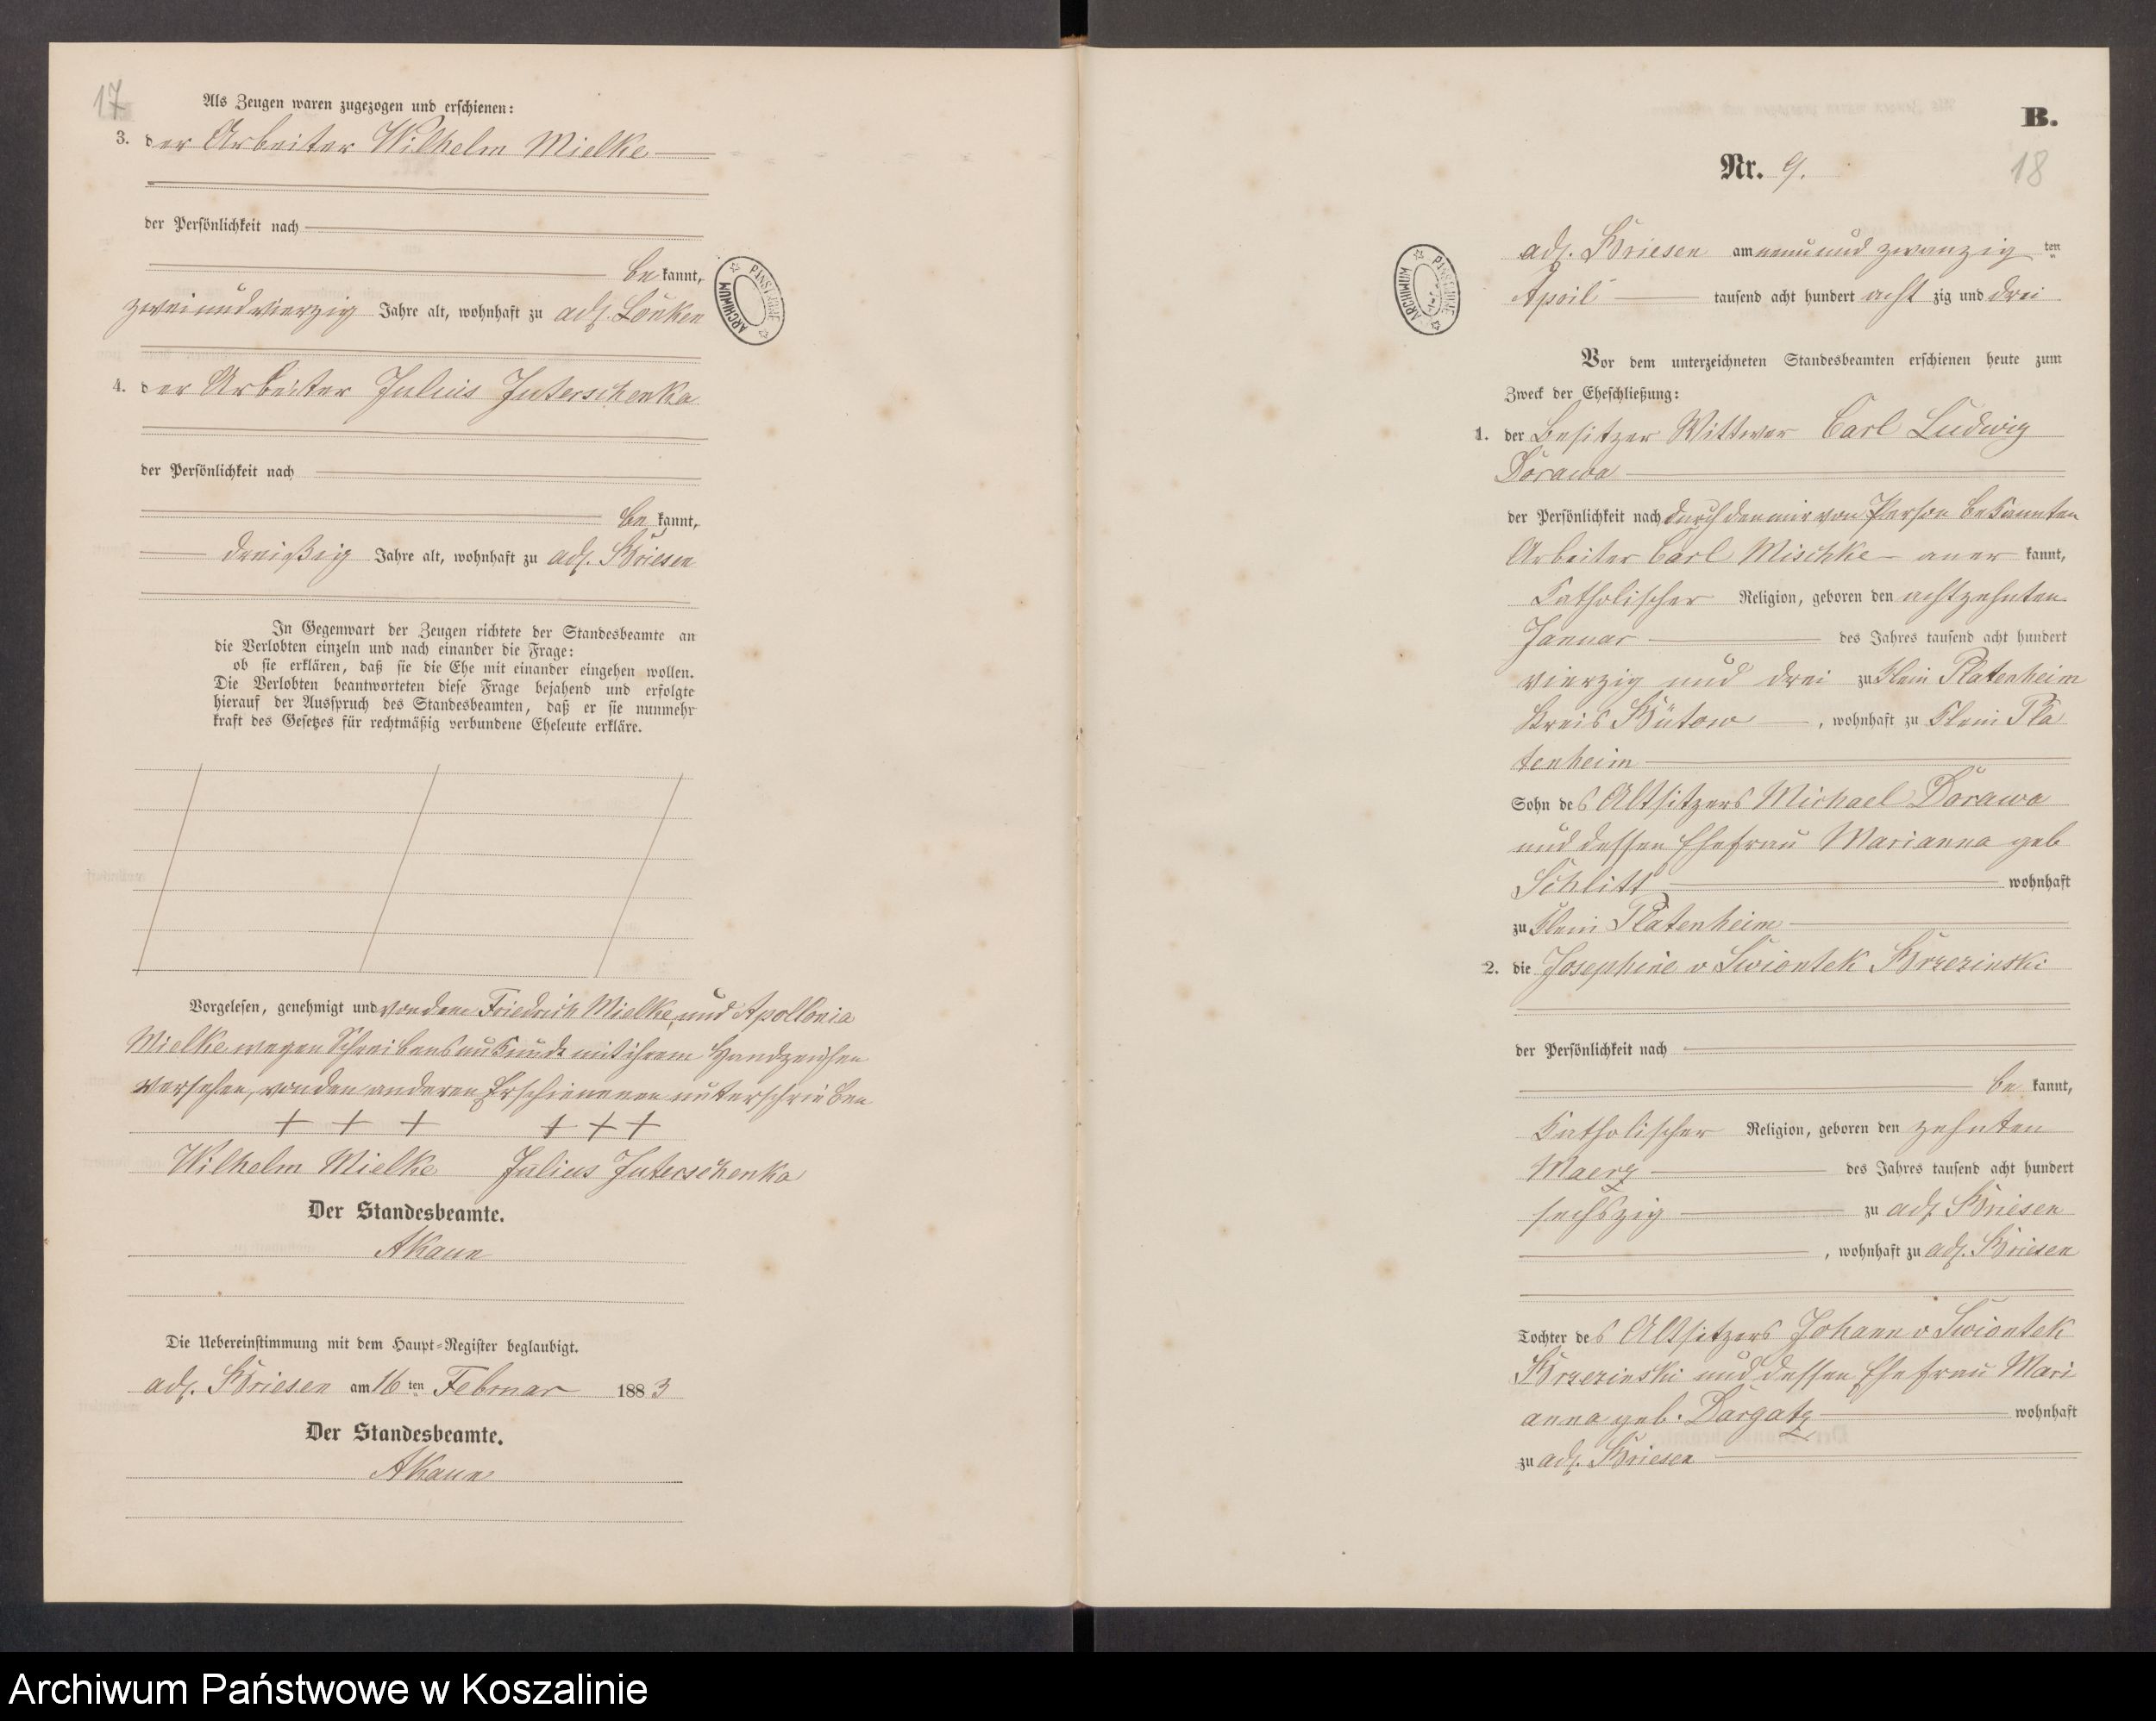 17
Als Zeugen waren zugezogen und erschienen:
3. der Arbeiter Wilhelm Mielke
der Persönlichkeit nach
be kannt,
zweiundvierzig Jahre alt, wohnhaft zu adl. Lonken
4. der Arbeiter Julius Juterschenka
der Persönlichkeit nach
be kannt,
dreißig Jahre alt, wohnhaft zu adl. Briesen
In Gegenwart der Zeugen richtete der Standesbeamte an
die Verlobten einzeln und nach einander die Frage:
ob sie erklären, daß sie die Ehe mit einander eingehen wollen.
Die Verlobten beantworteten diese Frage bejahend und erfolgte
hierauf der Ausspruch des Standesbeamten, daß er sie nunmehr
kraft des Gesetzes für rechtmäßig verbundene Eheleute erkläre.
Vorgelesen, genehmigt und von dem Friedrich Mielke, und Apollonia
Mielke wegen Schreibensunkunde mit ihrem Handzeichen
versehen, von den anderen Erschienenen unterschrieben
+ + + + + +
Wilhelm Mielke Julius Juterschenka
Der Standesbeamte.
AKaun
Die Uebereinstimmung mit dem Haupt-Register beglaubigt.
adl. Briesen am 16 ten Februar 1883
Der Standesbeamte.
AKaun
ARCHIWUM PAŃSTWOWE
B.
Nr. 9.
18
adl. Briesen am neunundzwanzig ten
April tausend acht hundert acht zig und drei
ARCHIWUM PAŃSTWOWE
Vor dem unterzeichneten Standesbeamten erschienen heute zum
Zweck der Eheschließung:
1. der Besitzer Wittwer Carl Ludwig
Dorawa
der Persönlichkeit nach durch den mir von Person bekannten
Arbeiter Carl Mischke aner kannt,
Katholischer Religion, geboren den achtzehnten
Januar des Jahres tausend acht hundert
vierzig und drei zu Klein Platenheim
Kreis Bütow, wohnhaft zu Klein Pla
tenheim
Sohn des Altsitzers Michael Dorawa
und dessen Ehefrau Marianna geb
Schlitt wohnhaft
zu Klein Platenheim
2. die Josephine v Swiontek Brzezinski
der Persönlichkeit nach
be kannt,
Katholischer Religion, geboren den zehnten
Maerz des Jahres tausend acht hundert
sechszig zu adl Briesen
, wohnhaft zu adl. Briesen
Tochter des Altsitzers Johann v Swiontek
Brzezinski und dessen Ehefrau Mari
anna geb. Dargatz wohnhaft
zu adl. Briesen
Archiwum Państwowe w Koszalinie